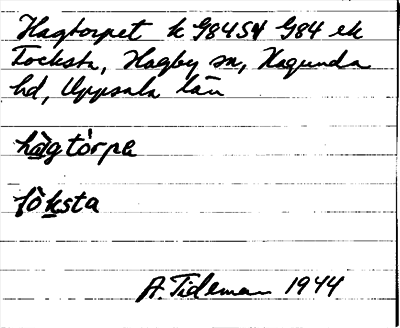 Hagtorpet k G84SV G84 ek
Focksta, Hagby sn, Hagunda
hd, Uppsala län
hàgtòrpa
fòksta
A. Tideman 1944